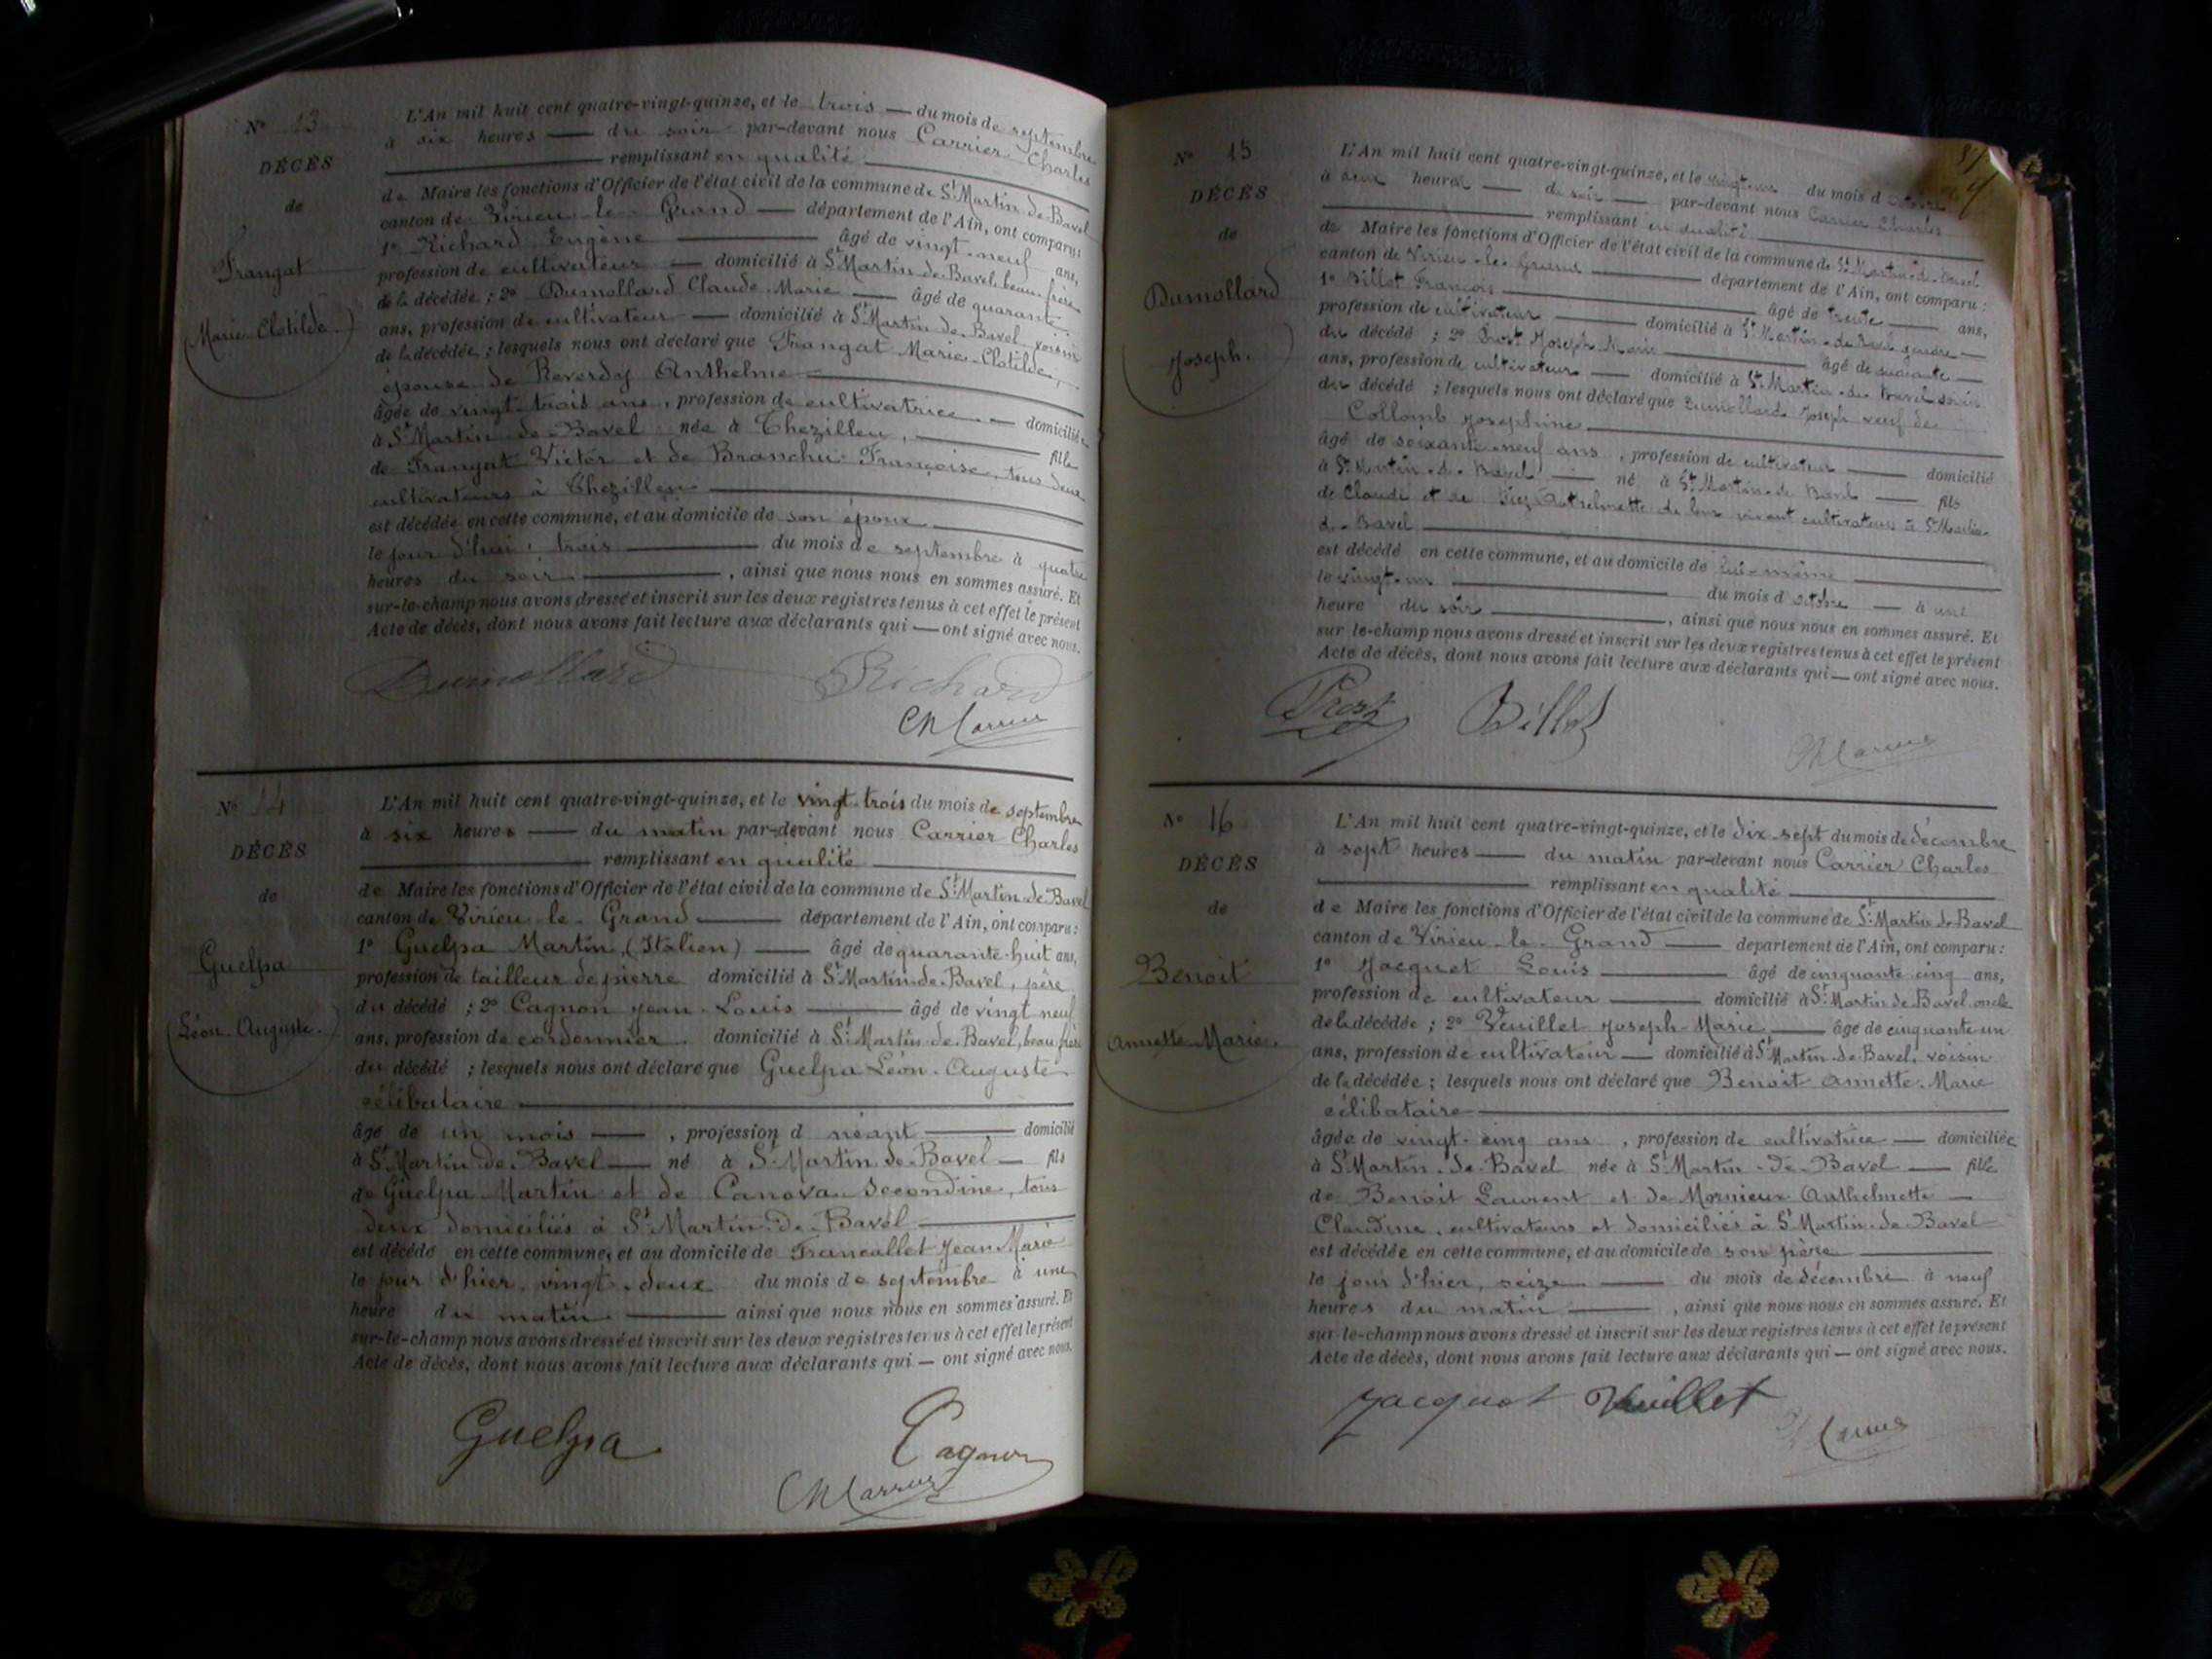 N° 13
DÉCÈS
de
Frangat
Marie Clotilde
L'An mil huit cent quatre-vingt-quinze, et le trois — du mois de septembre
à six heures — du soir par-devant nous Carrier Charles
remplissant en qualité
de Maire les fonctions d'Officier de l'état civil de la commune de St Martin de Bavel
canton de Virieu le Grand — département de l'Ain, ont comparu:
1° Richard Eugène — âgé de vingt-neuf ans,
profession de cultivateur — domicilié à St Martin de Bavel, beau-frère
de la décédée ; 2° Dumollard Claude Marie — âgé de quarante
ans, profession de cultivateur — domicilié à St Martin de Bavel voisin
de la décédée ; lesquels nous ont déclaré que Frangat Marie-Clotilde,
épouse de Reverdy Anthelme
âgée de vingt-trois ans, profession de cultivatrice — domiciliée
à St Martin de Bavel née à Thezillieu, — fille
de Frangat Victor et de Branchu Françoise, tous deux
cultivateurs à Thezillieu
est décédée en cette commune, et au domicile de son époux
le jour d'hui, trois — du mois de septembre à quatre
heures du soir —, ainsi que nous nous en sommes assuré. Et
sur-le-champ nous avons dressé et inscrit sur les deux registres tenus à cet effet le présent
Acte de décès, dont nous avons fait lecture aux déclarants qui — ont signé avec nous.
Dumollard Richard
Ch Carrier
N° 14
DÉCÈS
de
Guelpa
Léon-Auguste.
L'An mil huit cent quatre-vingt-quinze, et le vingt-trois du mois de septembre
à six heures — du matin par-devant nous Carrier Charles
remplissant en qualité
de Maire les fonctions d'Officier de l'état civil de la commune de St Martin de Bavel
canton de Virieu-le-Grand — département de l'Ain, ont comparu:
1° Guelpa Martin, (Italien) — âgé de quarante-huit ans,
profession de tailleur de pierre domicilié à St Martin de Bavel, père
du décédé ; 2° Cagnon Jean-Louis — âgé de vingt neuf
ans, profession de cordonnier. domicilié à St Martin de Bavel, beau frère
du décédé ; lesquels nous ont déclaré que Guelpa Léon-Auguste
célibataire
âgé de un mois —, profession d néant — domicilié
à St Martin de Bavel — né à St Martin de Bavel — fils
de Guelpa Martin et de Canova Secondine, tous
deux domiciliés à St Martin-de-Bavel
est décédé en cette commune, et au domicile de Francallet Jean Marie
le jour d'hier, vingt-deux du mois de septembre à une
heure du matin — ainsi que nous nous en sommes assuré. Et
sur-le-champ nous avons dressé et inscrit sur les deux registres tenus à cet effet le présent
Acte de décès, dont nous avons fait lecture aux déclarants qui — ont signé avec nous.
Guelpa Cagnon
Ch Carrier
N° 15
DÉCÈS
de
Dumollard
Joseph.
L'An mil huit cent quatre-vingt-quinze, et le vingt-un du mois d octobre
à deux heures — du soir — par-devant nous Carrier Charles
remplissant en qualité
de Maire les fonctions d'Officier de l'état civil de la commune de St Martin-de-Bavel
canton de Virieu-le-Grand — département de l'Ain, ont comparu:
1° Billet François — âgé de trente — ans,
profession de cultivateur — domicilié à St Martin-de-Bavel gendre —
du décédé ; 2° Prost Joseph Marie — âgé de quarante —
ans, profession de cultivateur — domicilié à St Martin-de-Bavel voisin
du décédé ; lesquels nous ont déclaré que Dumollard Joseph veuf de
Collomb Josephine
âgé de soixante-neuf ans, profession de cultivateur — domicilié
à St Martin-de-Bavel — né à St Martin-de-Bavel — fils
de Claude et de Anthelmette de leur vivant cultivateurs à St Martin-
de-Bavel
est décédé en cette commune, et au domicile de lui-même
le vingt-un — du mois d octobre — à une
heure du soir —, ainsi que nous nous en sommes assuré. Et
sur-le-champ nous avons dressé et inscrit sur les deux registres tenus à cet effet le présent
Acte de décès, dont nous avons fait lecture aux déclarants qui — ont signé avec nous.
Prost Billet
Ch Carrier
N° 16
DÉCÈS
de
Benoit
Annette-Marie.
L'An mil huit cent quatre-vingt-quinze, et le dix-sept du mois de décembre
à sept heures — du matin par-devant nous Carrier Charles
remplissant en qualité
de Maire les fonctions d'Officier de l'état civil de la commune de St Martin de Bavel
canton de Virieu-le-Grand — département de l'Ain, ont comparu:
1° Jacquet Louis — âgé de cinquante cinq ans,
profession de cultivateur — domicilié à St Martin de Bavel, oncle
de la décédée ; 2° Veuillet Joseph-Marie — âgé de cinquante-un
ans, profession de cultivateur — domicilié à St Martin-de-Bavel, voisin
de la décédée ; lesquels nous ont déclaré que Benoit Annette-Marie
célibataire
âgée de vingt-cinq ans, profession de cultivatrice — domiciliée
à St Martin-de-Bavel née à St Martin-de-Bavel — fille
de Benoit Laurent et de Mornieux Anthelmette —
Claudine, cultivateurs et domiciliés à St Martin-de-Bavel
est décédée en cette commune, et au domicile de son père
le jour d'hier, seize — du mois de décembre à neuf
heures du matin —, ainsi que nous nous en sommes assuré. Et
sur-le-champ nous avons dressé et inscrit sur les deux registres tenus à cet effet le présent
Acte de décès, dont nous avons fait lecture aux déclarants qui — ont signé avec nous.
Jacquet Veuillet
Ch Carrier